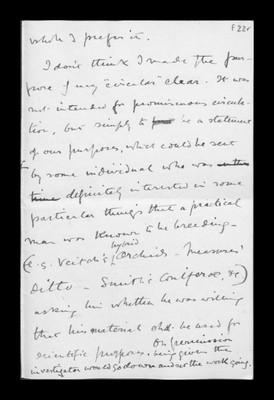 F22r
which I prefer it.
I don't think I made the pur-
pose of my "circular" clear. It was
not intended for promiscuous circula-
tion, but simply to be a statement
of our purposes, which could be sent
by some individual who was
definitely interested in some
particular things that a practical
man was known to be breeding –
(e.g. Veitch's hybrid Orchids – Measures'
ditto – Smith's Coniferae, &c)
asking him whether he was willing
that his material shd. be used for
scientific purposes. On permission
being given the
investigator would go down and set the work going.